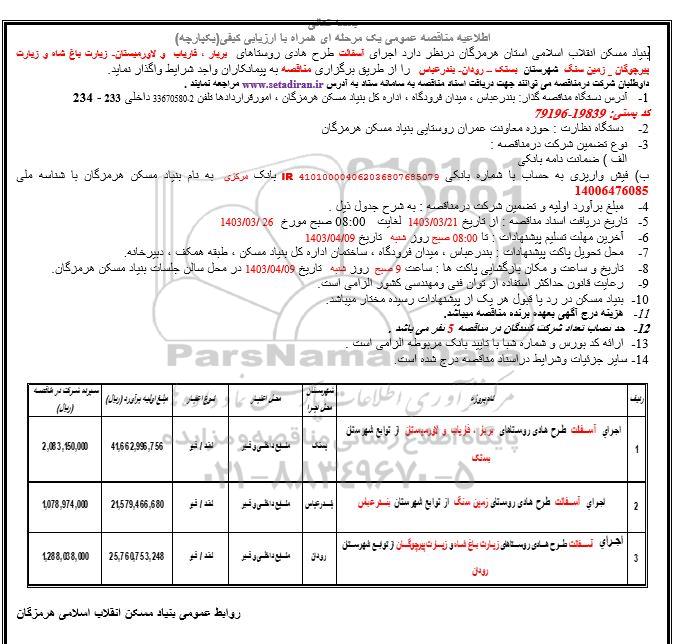 بسمه تعالی
اطلاعیه مناقصه عمومی یک مرحله ای همراه با ارزیابی کیفی(یکپارچه)
بنیاد مسکن انقلاب اسلامی استان هرمزگان درنظر دارد اجرای آسفالت طرح هادی روستاهای بربار ، فاریاب و لاورمیستان- زیارت باغ شاه و زیارت
پیرچوگان _ زمین سنگ شهرستان بستک – رودان- بندرعباس را از طریق برگزاری مناقصه به پیمانکاران واجد شرایط واگذار نماید.
داوطلبان شرکت درمناقصه می توانند جهت دریافت اسناد مناقصه به سامانه ستاد به آدرس www.setadiran.ir مراجعه نمایند .
1- آدرس دستگاه مناقصه گذار: بندرعباس ، میدان فرودگاه ، اداره کل بنیاد مسکن هرمزگان ، امورقراردادها تلفن 2-33670580 داخلی 233 - 234
کد پستی: 19839-79196
2- دستگاه نظارت : حوزه معاونت عمران روستایی بنیاد مسکن هرمزگان
3- نوع تضمین شرکت درمناقصه :
الف ) ضمانت نامه بانکی
ب) فیش واریزی به حساب با شماره بانکی IR 410100004062036807685079 بانک مرکزی به نام بنیاد مسکن هرمزگان با شناسه ملی
14006476085
4- مبلغ برآورد اولیه و تضمین شرکت درمناقصه : به شرح جدول ذیل .
5- تاریخ دریافت اسناد مناقصه : از تاریخ 1403/03/21 لغایت 08:00 صبح مورخ 26 /1403/03
6- آخرین مهلت تسلیم پیشنهادات : تا 08:00 صبح روز شنبه تاریخ 1403/04/09
7- محل تحویل پاکت پیشنهادات : بندرعباس ، میدان فرودگاه ، ساختمان اداره کل بنیاد مسکن ، طبقه همکف ، دبیرخانه.
8- تاریخ و ساعت و مکان بازگشایی پاکت ها : ساعت 9 صبح روز شنبه تاریخ 1403/04/09 در محل سالن جلسات بنیاد مسکن هرمزگان.
9- رعایت قانون حداکثر استفاده از توان فنی ومهندسی کشور الزامی است.
10- بنیاد مسکن در رد یا قبول هر یک از پیشنهادات رسیده مختار میباشد.
11- هزینه درج آگهی بعهده برنده مناقصه میباشد.
12- حد نصاب تعداد شرکت کنندگان در مناقصه 5 نفر می باشد .
13- ارائه کد بورس و شماره شبا با تایید بانک مربوطه الزامی است .
14- سایر جزئیات وشرایط دراسناد مناقصه درج شده است.
ردیف نام پروژه شهرستان محل اجرا محل اعتبار نوع اعتبار مبلغ اولیه برآورد (ریال) سپرده شرکت در مناقصه (ریال)
1 اجرای آسفالت طرح هادی روستاهای بربار ، فاریاب و لاورمیستان از توابع شهرستان بستک بستک منابع داخلی و قیر نقد / قیر 41,662,996,756 2,083,150,000
2 اجرای آسفالت طرح هادی روستای زمین سنگ از توابع شهرستان بندرعباس بندرعباس منابع داخلی و قیر نقد / قیر 21,579,466,680 1,078,974,000
3 اجرای آسفالت طرح هادی روستاهای زیارت باغ شاه و زیارت پیرچوگان از توابع شهرستان رودان رودان منابع داخلی و قیر نقد / قیر 25,760,753,248 1,288,038,000
روابط عمومی بنیاد مسکن انقلاب اسلامی هرمزگان
ParsNamadData
پایگاه اطلاع رسانی مناقصه و مزایده
۰۲۱-۸۸۳۴۹۶۷۰-۵